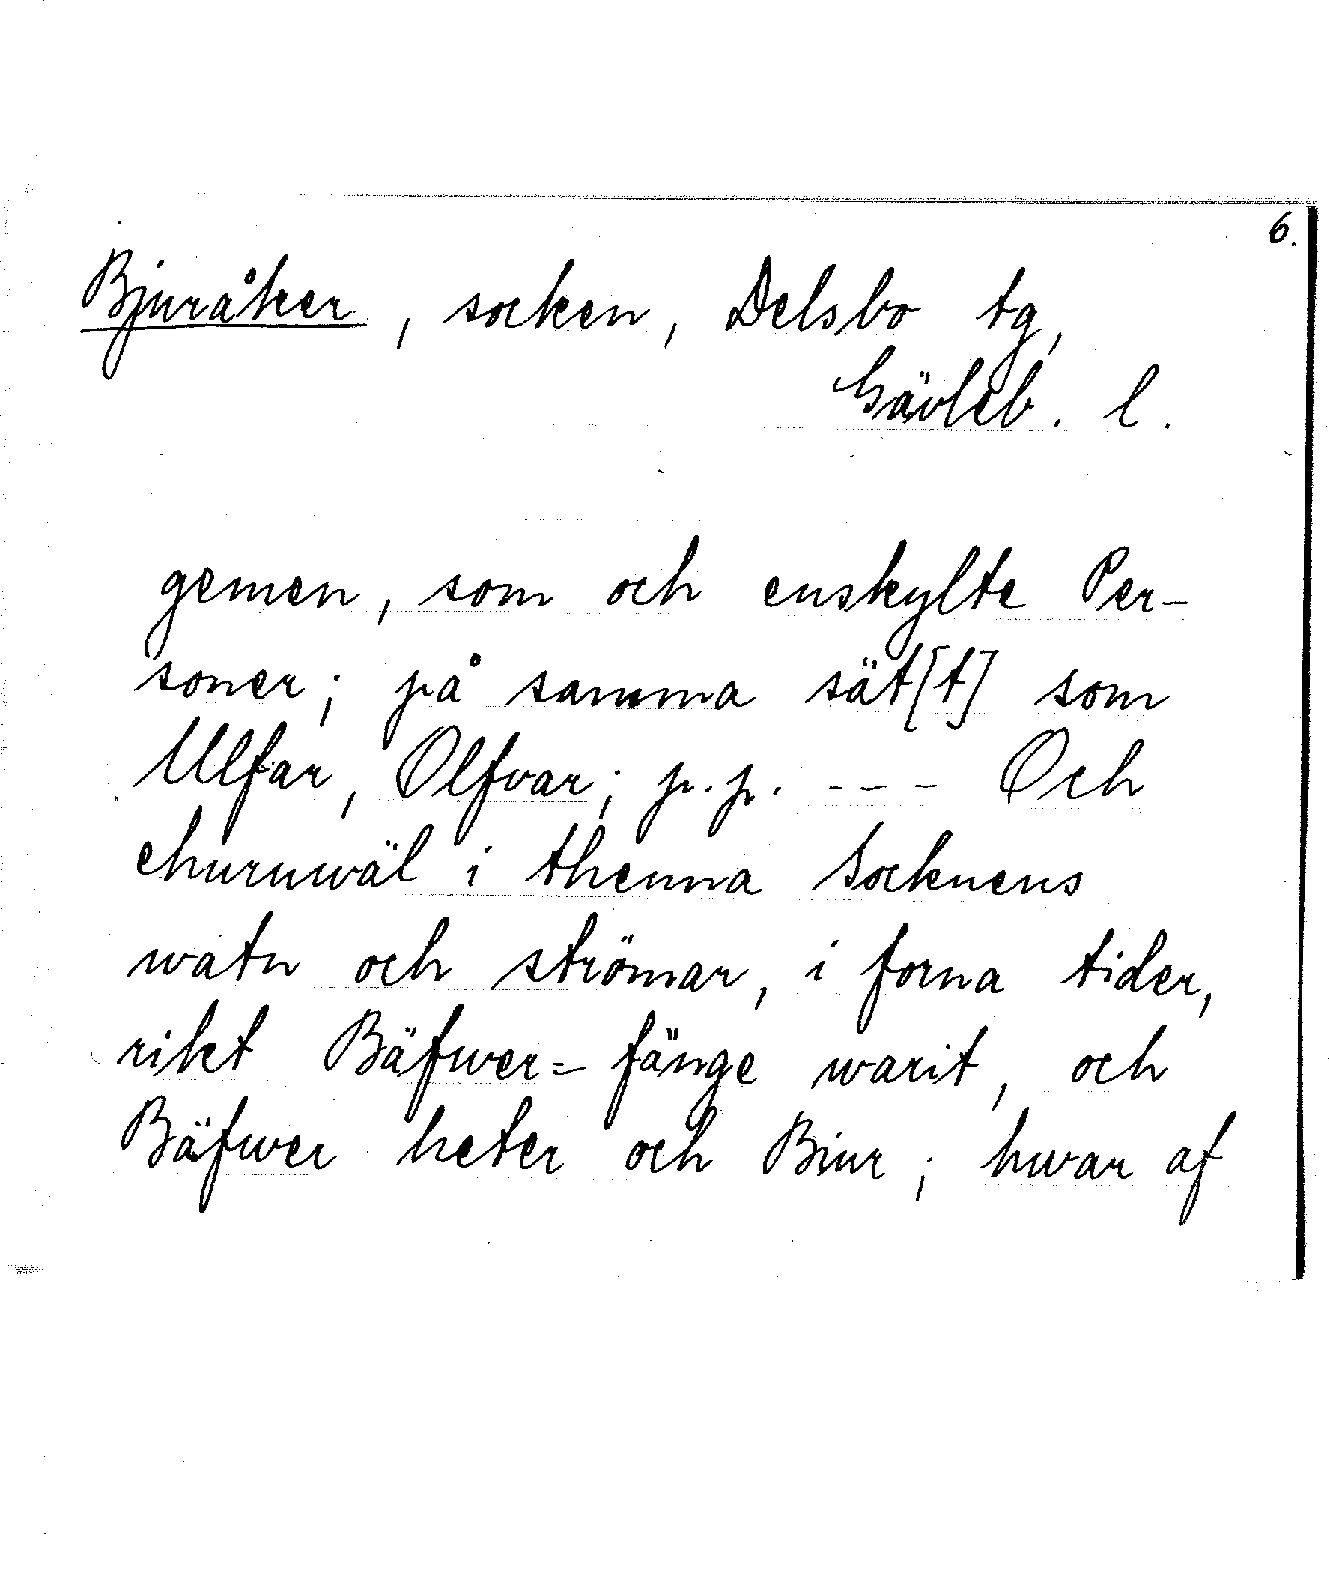 6.
Bjuråker, socken, Delsbo tg,
Gävleb. l.
gemen, som och enskylte Per-
soner; på samma sät[t] som
Ulfar, Olfvar; p.p. --- Och
ehuruwäl i thenna Socknens
watn och strömar, i forna tider,
rikt Bäfwer= fänge warit, och
Bäfwer heter och Biur; hwar af